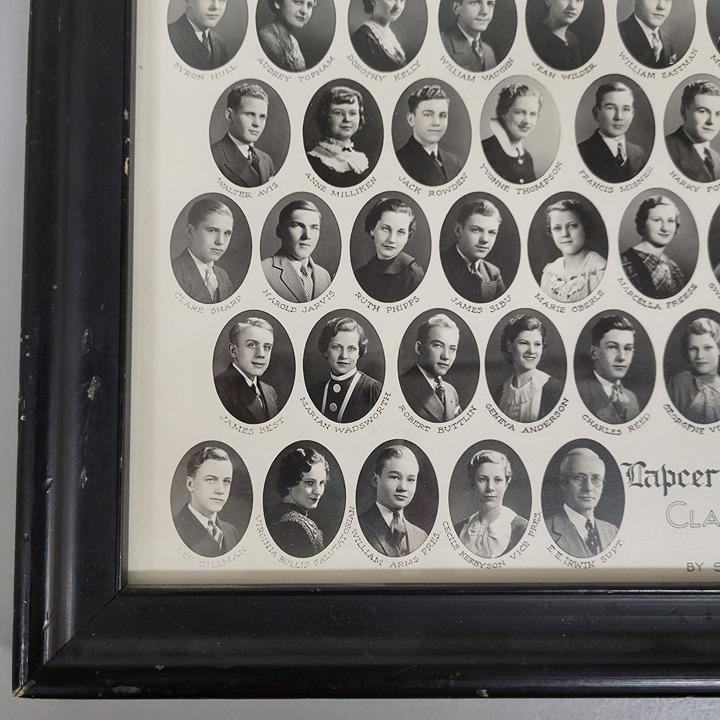 BYRON HULL AUDREY TOPHAM DOROTHY KELLY WILLIAM VAUGHN JEAN WILDER WILLIAM EASTMAN
WALTER AVIS ANNE MILLIKEN JACK ROWDEN YVONNE THOMPSON FRANCIS MISNER HARRY
CLARE SHARP HAROLD JARVIS RUTH PHIPPS JAMES SIBU MARIE OBERLE MARCELLA FREESE
JAMES BEST MARIAN WADSWORTH ROBERT BUTTLIN GENEVA ANDERSON CHARLES REED GEORGENE
Lapeer
CLA
LEE GILLMAN VIRGINIA BULLIS SALUTATORIAN WILLIAM ARMS PRES. CECILE KERBYSON VICE PRES. E.E. IRWIN SUPT.
BY S